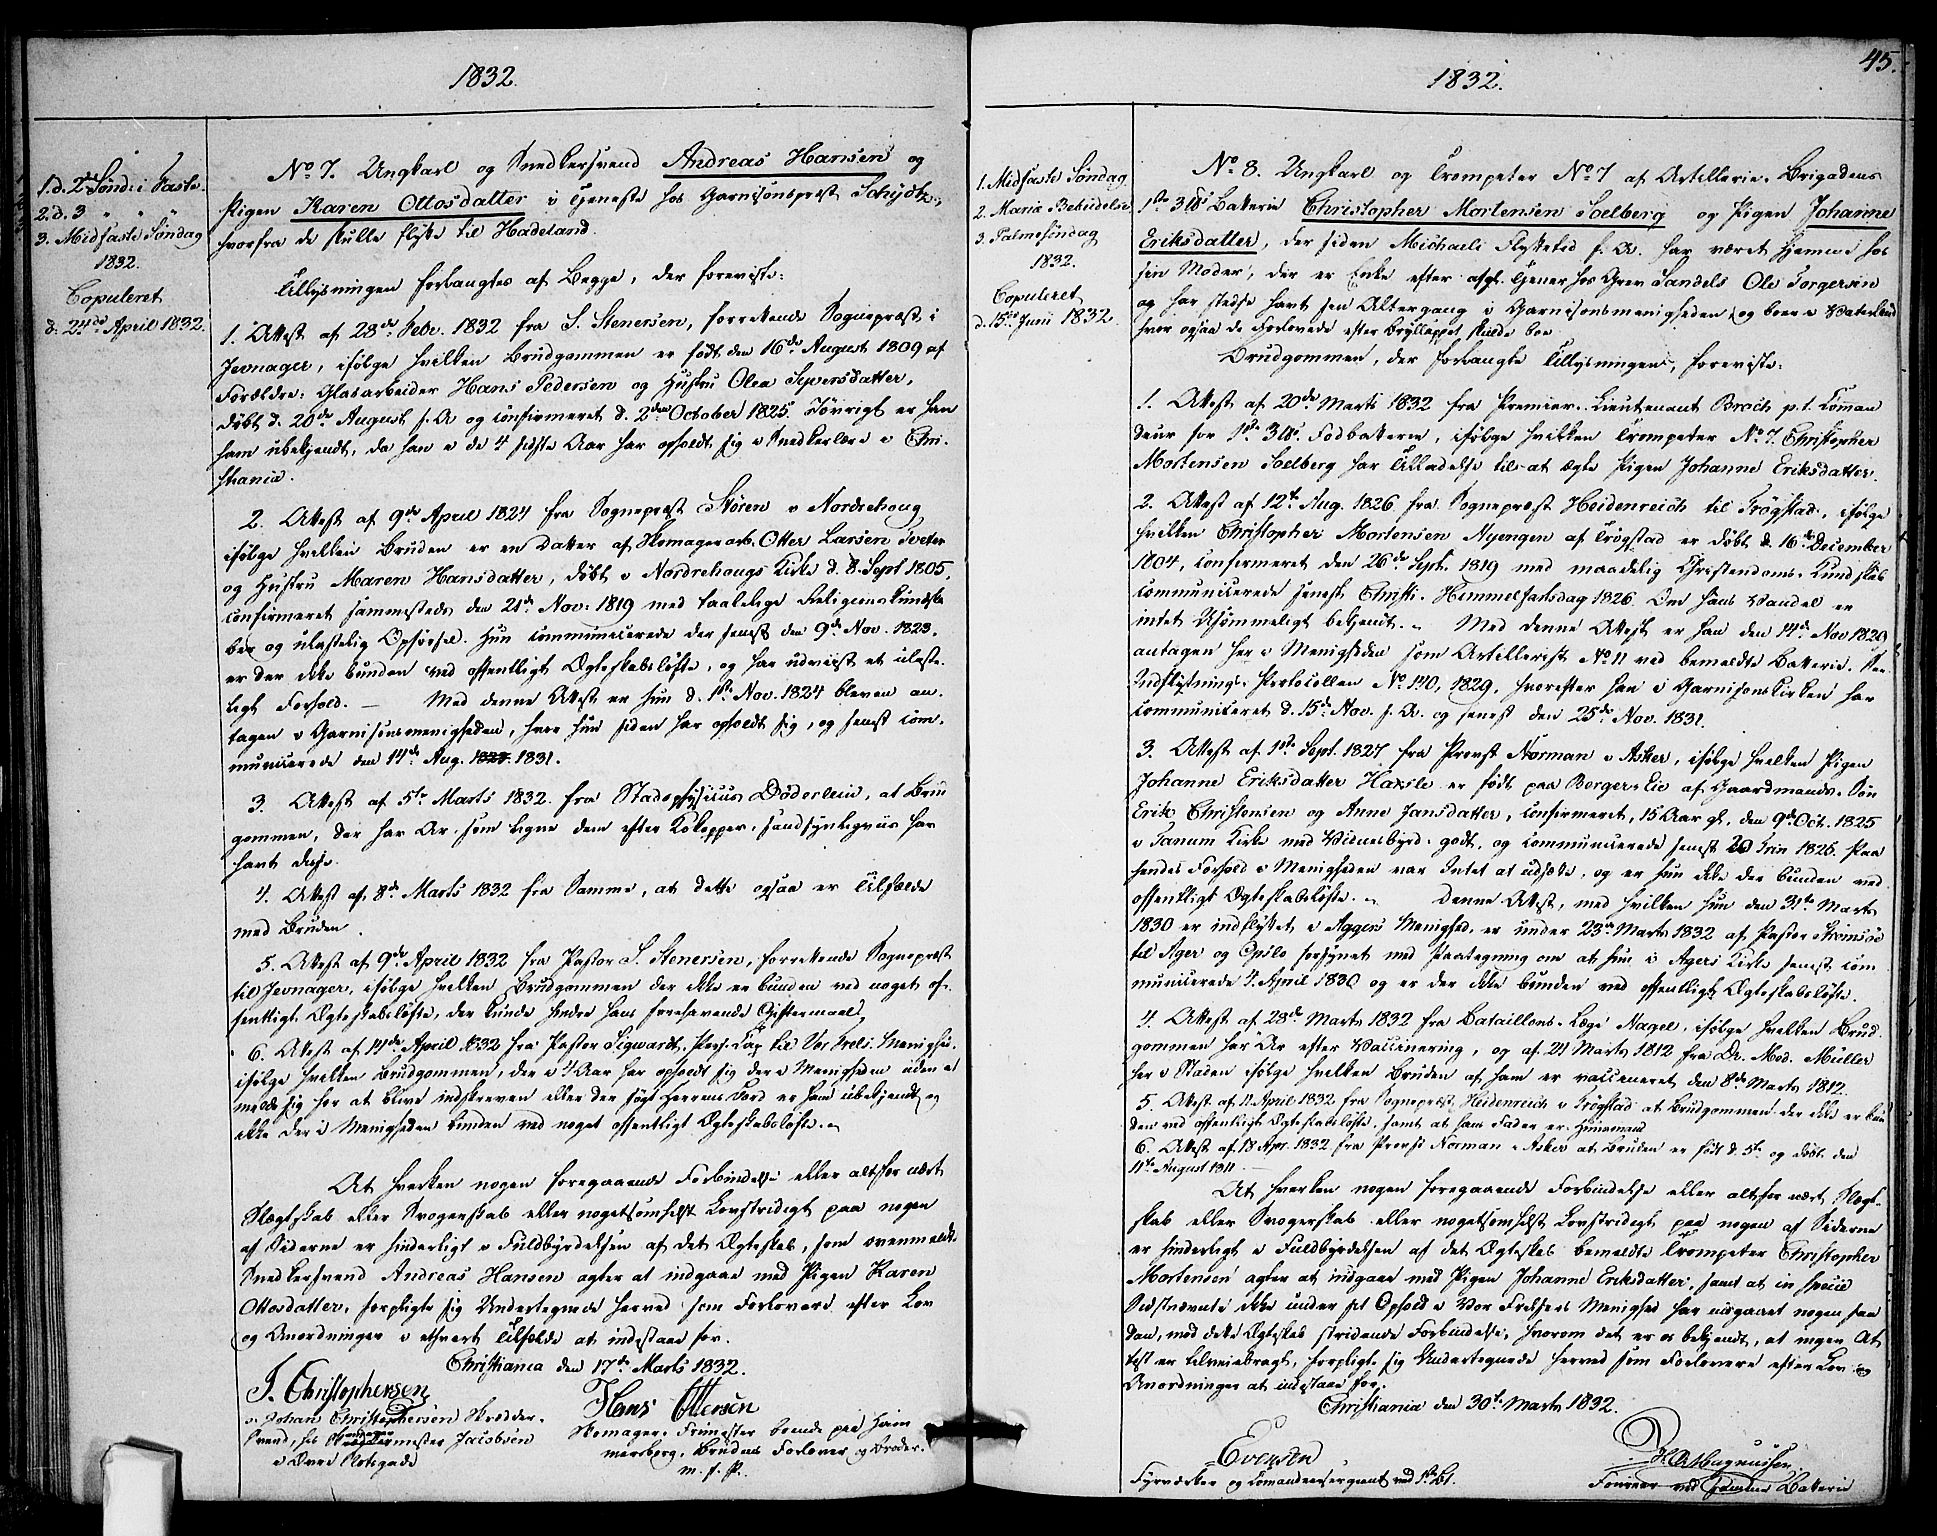 1832.
1.d. 2den Sönd. i Faste.
2.d. 3 " " "
3. Midfaste Söndag
1832.
Copuleret
d. 24de April 1832.
No 7. Ungkarl og Snedkersvend Andreas Hansen og
Pigen Karen Ottosdatter i Tjeneste hos Garnisonspræst Schydtz,
hvorfra de skulle flytte til Hadeland.
Tillysningen forlangtes af Begge, der foreviste:
1. Attest af 28de Febr. 1832 fra S. Stenersen, forrettende Sognepræst i
Jevnager, ifølge hvilken Brudgommen er født den 16de August 1809 af
Forældre: Glasarbeider Hans Pedersen og Hustru Olea Sypersdatter,
døbt d. 20de August s. A. og confirmeret d. 2den October 1825. Iøvrigt er han
ham ubekjendt, da han i de 4 sidste Aar har opholdt sig i Snedkerlære i Chri-
stiania.
2. Attest af 9de April 1824 fra Sognepræst Støren i Nordrehoug
ifølge hvilken Bruden er en Datter af Skomagerarb. Otter Larsen Tveter
og Hustru Maren Hansdatter, døbt i Nordrehougs Kirke d. 8. Sept 1805,
confirmeret sammesteds den 21de Nov. 1819 med taalelige Religionskundska-
ber og ulastelig Opførsel. Hun communicerede der senest den 9de Nov. 1823,
er der ikke bunden ved offentligt Ægteskabsløfte, og har udviist et ulaste-
ligt Forhold. — Med denne Attest er hun d. 1ste Nov. 1824 bleven an-
tagen i Garnisonsmenigheden, hvor hun siden har opholdt sig, og senest com-
municerede den 14de Aug. 1831.
3. Attest af 5te Marts 1832 fra Stadsphysicus Døderlein, at Brud-
gommen, der har Ar som ligne dem efter Kokopper, sandsynligviis har
havt disse.
4. Attest af 8de Marts 1832 fra Samme, at dette ogsaa er Tilfælde
med Bruden.
5. Attest af 9de April 1832 fra Pastor S. Stenersen, forrettende Sognepræst
til Jevnager, ifølge hvilken Brudgommen der ikke er bunden ved noget of-
fentligt Ægteskabsløfte, der kunde hindre hans forehavende Giftermaal.
6. Attest af 14de April 1832 fra Pastor Sigwardt, Pers. Cap. til Vor Frels. Menighed,
ifølge hvilken Brudgommen, der i 4 Aar har opholdt sig der i Menigheden uden at
melde sig for at blive indskreven eller der søgt Herrens Bord er ham ubekjendt og
ikke der i Menigheden bunden ved noget offentligt Ægteskabsløfte.
At hverken nogen foregaaende Forbindelse eller altfor nært
Slægtskab eller Svogerskab eller nogetsomhelst Lovstridigt paa nogen
af Siderne er hinderligt i Fuldbyrdelsen af det Ægteskab, som ovenmeldte
Snedkersvend Andreas Hansen agter at indgaae med Pigen Karen
Ottosdatter, forpligte sig Undertegnede herved som Forlovere efter Lov
og Anordninger i ethvert Tilfælde at indestaae for.
Christiania den 17de Marts 1832.
J. Christophersen
Johan Christophersen Skrædder-
svend, hos Skræddermester Jacobsen
i Øvre Slotsgade
Hans Ottersen
Skomager-Frimester boende paa Ham-
mersborg, Brudens Forlover og Broder.
m. f. P.
45.
1832.
1. Midfaste Søndag
2. Mariæ Bebudelse
3. Palmesøndag
1832.
Copuleret
d. 15de Junii 1832
No 8. Ungkarl og Trompeter No 7 af Artillerie-Brigadens
1ste 3 ℔s Batterie Christopher Mortensen Soelberg og Pigen Johanne
Eriksdatter, der siden Michaeli Flyttetid f. A. har været hjemme hos
sin Moder, der er Enke efter afgl. Tjener hos Grev Sandels Ole Torgersen
og har stedse havt sin Altergang i Garnisonsmenigheden, og boer i Vaterland
hvor ogsaa de Forlovede efter Brylluppet skulde boe.
Brudgommen, der forlangte Tillysningen, foreviste:
1. Attest af 20de Marts 1832 fra Premier-Lieutenant Broch p.t. Comman-
deur for 1ste 3 ℔s Fodbatterie, ifølge hvilken Trompeter No 7. Christopher
Mortensen Soelberg har Tilladelse til at ægte Pigen Johanne Eriksdatter.
2. Attest af 12te Aug. 1826 fra Sognepræst Heidenreich til Trøgstad, ifølge
hvilken Christopher Mortensen Nyengen af Trøgstad er døbt d. 16de December
1804, confirmeret den 26de Sept. 1819 med maadelig Christendoms-Kundskab
communicerede senest Christi Himmelfartsdag 1826. Om hans Vandel er
intet Usømmeligt bekjendt. — Med denne Attest er han den 14de Nov 1829
antagen her i Menigheden som Artillerist No 11 ved bemeldte Batterie. See
Indflytnings-Protocollen No 140, 1829, hvorefter han i Garnisonskirken har
communiceret d. 15de Nov. s. A. og senest den 25de Nov. 1831.
3. Attest af 1ste Sept. 1827 fra Provst Norman i Asker, ifølge hvilken Pigen
Johanne Eriksdatter Haxsle er født paa Berger-Eie af Gaardmands-Søn
Erik Christensen og Anne Jansdatter, confirmeret, 15 Aar gl., den 9de Oct. 1825
i Tanum Kirke med Vidnesbyrd: godt, og communicerede senest Trin 1826. Paa
hendes Forhold i Menigheden var Intet at udsætte, og er hun ikke der bunden ved
offentligt Ægteskabsløfte. — Denne Attest, med hvilken hun den 31te Marts
1830 er indflyttet i Aggers Menighed, er under 23de Marts 1832 af Pastor Strømsøe
til Ager og Opslo forsynet med Paategning om at hun i Agers Kirke senest com-
municerede 4 April 1830 og er der ikke bunden ved offentligt Ægteskabsløfte.
4. Attest af 28de Marts 1832 fra Bataillons-Læge Nagel, ifølge hvilken Brud-
gommen har Ar efter Vaccinering, og af 21 Marts 1812 fra Dr. Med. Müller
her i Staden ifølge hvilken Bruden af ham er vaccineret den 8de Marts 1812.
5. Attest af 11 April 1832 fra Sognepræst Heidenreich i Trøgstad at Brudgommen der ikke er bun-
den ved offentligt Ægteskabsløfte, samt at hans Fader er Huusmand
6. Attest af 18 Apr. 1832 fra Provst Norman i Asker at Bruden er født d. 5te og døbt den
11te August 1811
At hverken nogen foregaaende Forbindelse eller altfor nært Slægt-
skab eller Svogerskab eller nogetsomhelst Lovstridigt paa nogen af Siderne
er hinderligt i Fuldbyrdelsen af det Ægteskab bemeldte Trompeter Christopher
Mortensen agter at indgaae med Pigen Johanne Eriksdatter, samt at in specie
Sidstnævnte ikke under sit Ophold i Vor Frelsers Menighed har indgaaet nogen saa-
dan, mod dette Ægteskab stridende Forbindelse, hvorom det er os bekjendt, at ingen At-
test er tilveiebragt, forpligte sig Undertegnede herved som Forlovere efter Lov og
Anordninger at indestaae for.
Christiania den 30te Marts 1832.
Evensen
Fyrværker og Commandeersergeant ved 1ste Bt.
H A Magnussen.
Foureer ved samme Batterie